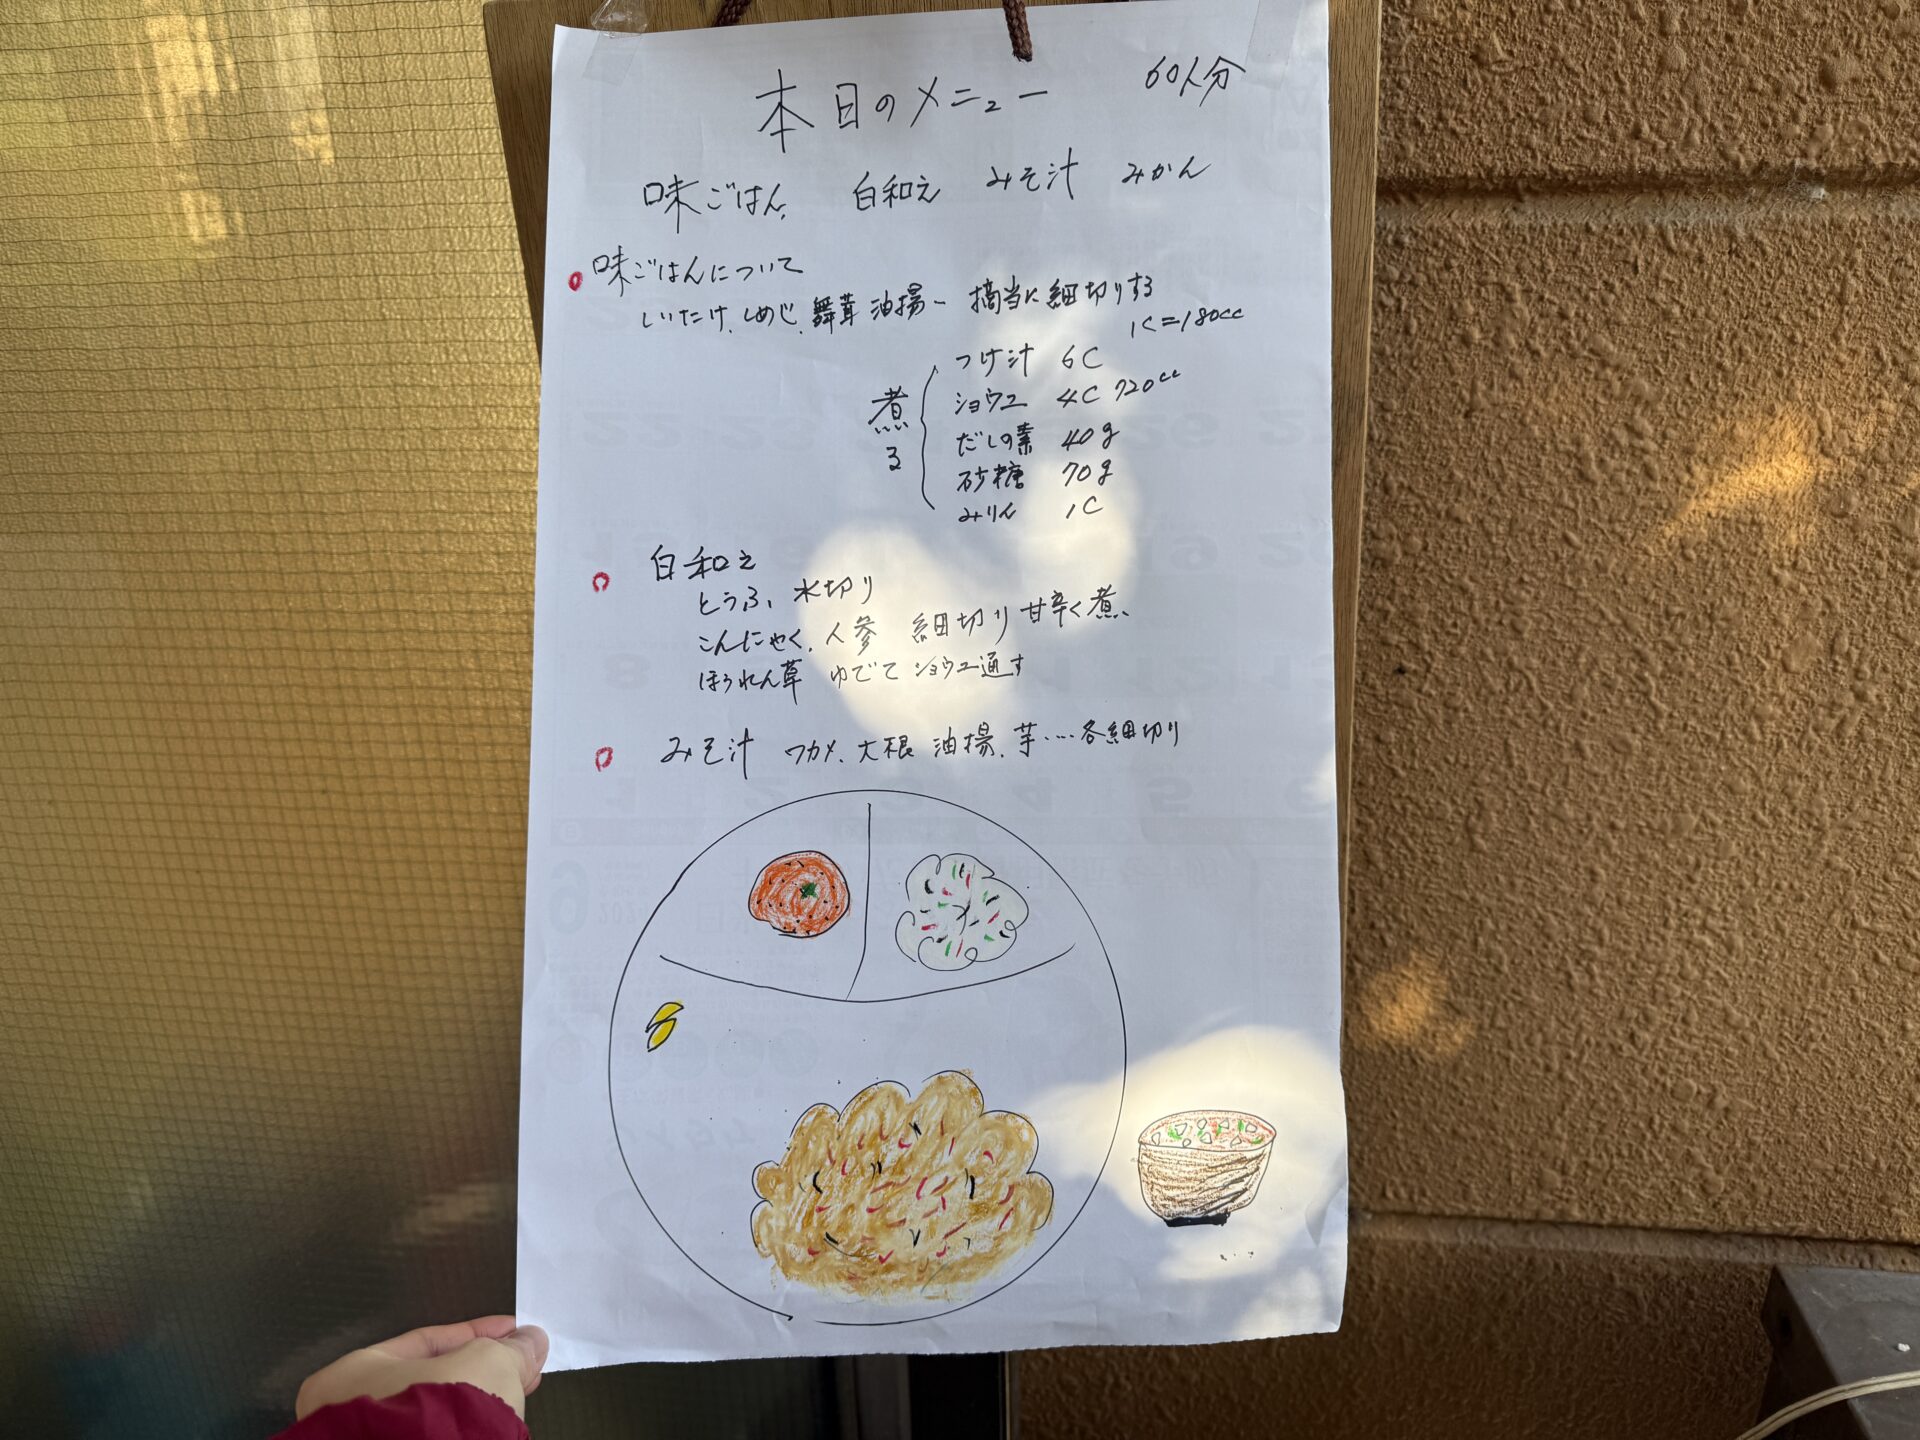 本日のメニュー 60人分
味ごはん、 白和え みそ汁 みかん
味ごはんについて
しいたけ、しめじ、舞茸 油揚ー 摘当に細切りする
1C=180cc
煮る
つけ汁 6C
ショウユ 4C 720cc
だしの素 40g
砂糖 70g
みりん 1C
白和え
とうふ、水切り
こんにゃく、人参 細切り 甘辛く煮、
ほうれん草 ゆでて ショウユ通す
みそ汁 ワカメ、大根 油揚、芋……各細切り